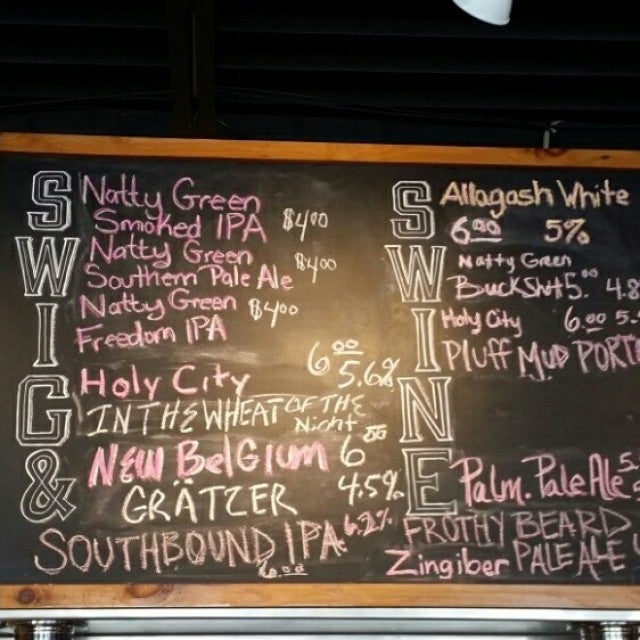 SWIG &
Natty Green
Smoked IPA $4.00
Natty Green
Southern Pale Ale $4.00
Natty Green
Freedom IPA $4.00
Holy City 6.00 5.6%
IN THE WHEAT OF THE
Night
NEW BELGIUM 6.00
GRÄTZER 4.5%
SOUTHBOUND IPA 6.2%
6.00
SWINE
Allagash White
6.00 5%
Natty Green
Buckshot 5.00 4.8
Holy City 6.00 5.
PLUFF MUD PORT
Palm. Pale Ale
FROTHY BEARD
Zingiber PALE ALE